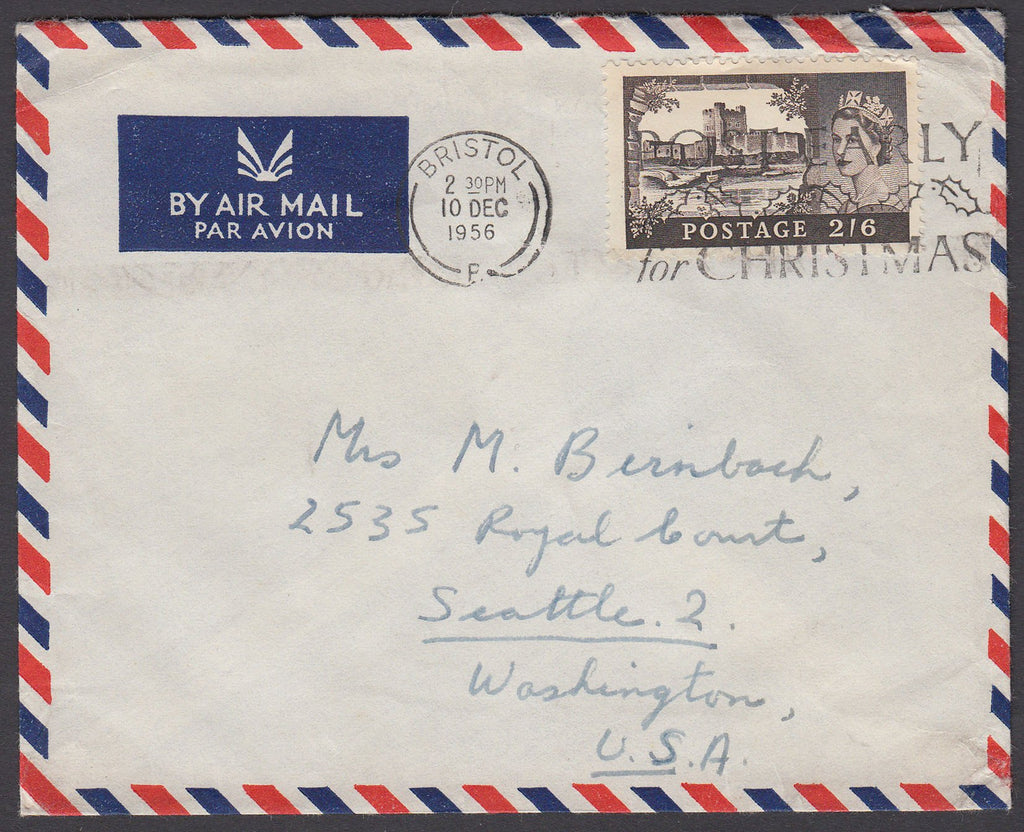 BY AIR MAIL
PAR AVION
BRISTOL
2 30PM
10 DEC
1956
P.
POST EARLY
for CHRISTMAS
POSTAGE 2/6
Mrs M. Bernbach,
2535 Royal Court,
Seattle. 2.
Washington,
U.S.A.